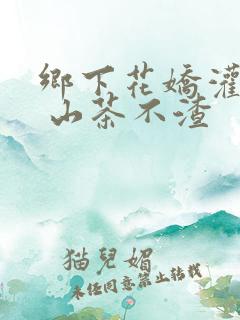 鄉下花嬌灌
山茶不渣
猫兒媚
未任同意禁止转载